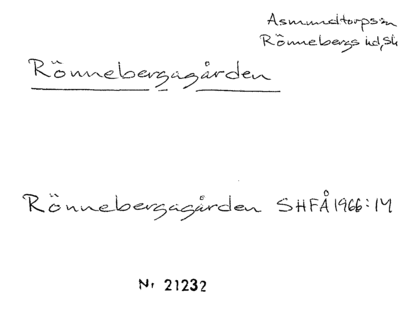 Asmundtorps sn
Rönnebergs hd, Sk
Rönnebergagården
Rönnebergagården SHFÅ 1966:14
Nr 21232